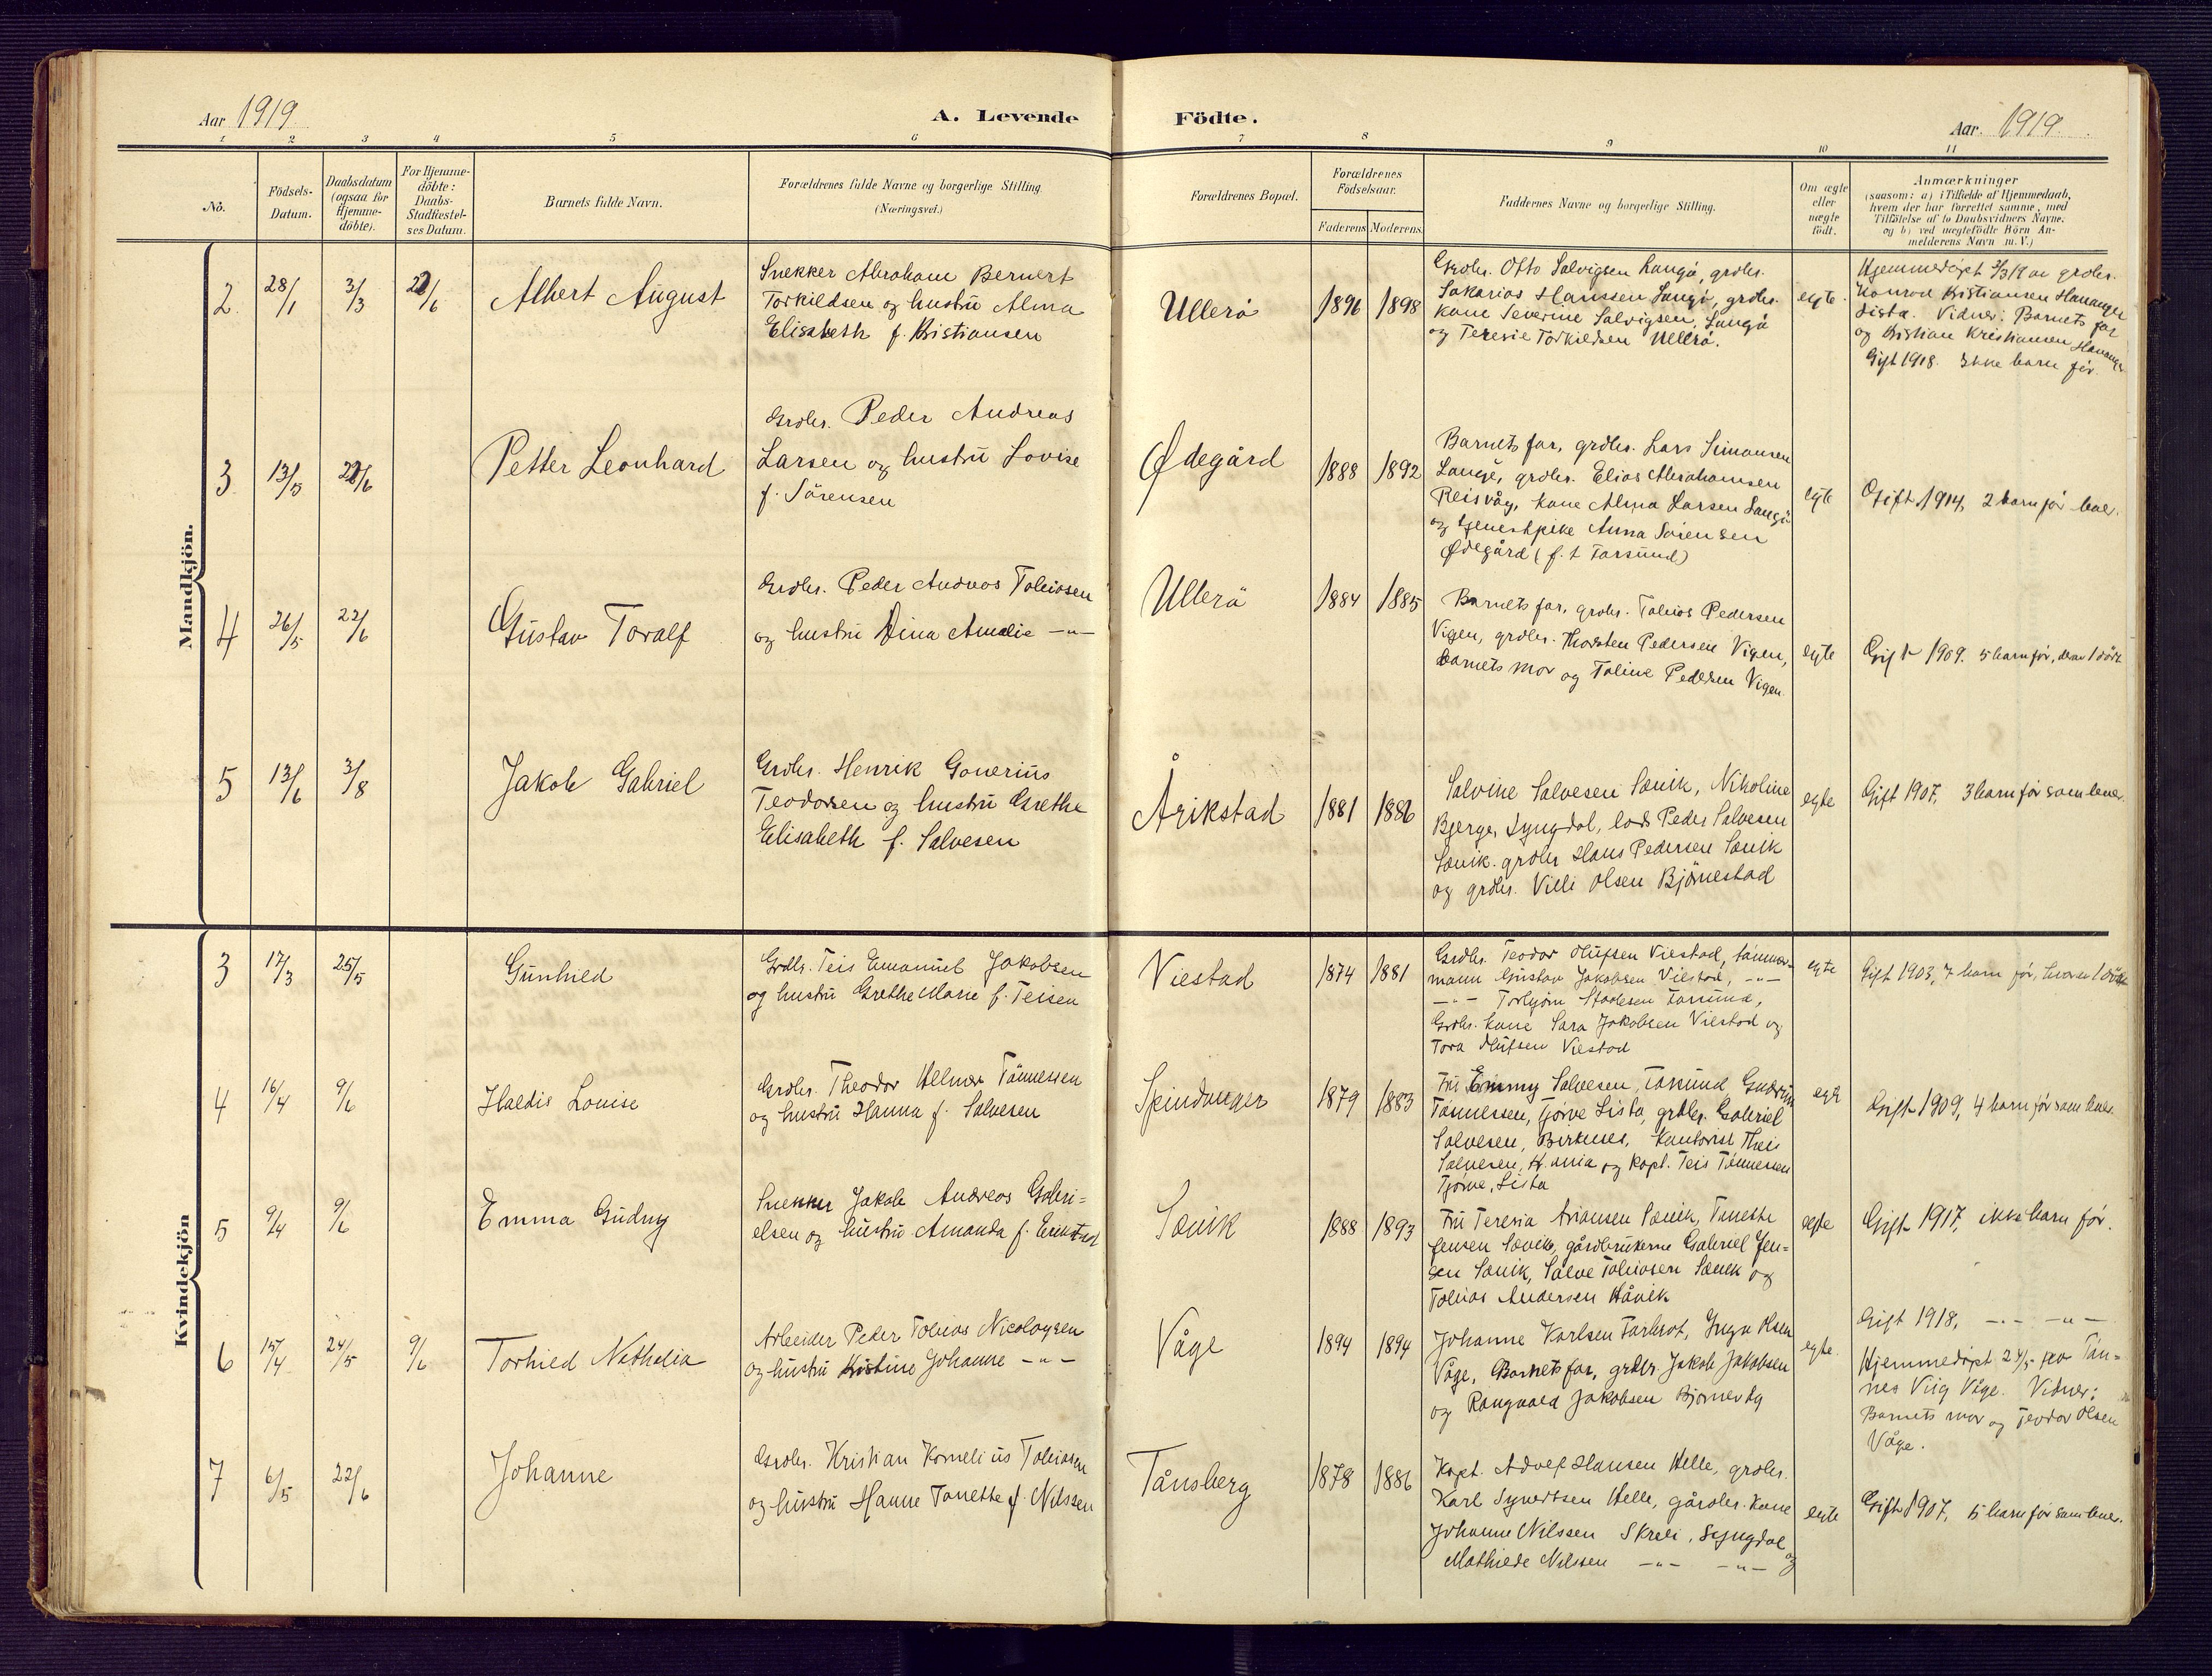 Aar 1919.
A. Levende Födte.
Aar. 1919.
1 2 3 4 5 6 7 8 9 10 11
No.
Födsels-
Datum.
Daabsdatum
(ogsaa for
Hjemme-
döbte).
For Hjemme-
döbte:
Daabs-
Stadfæstel-
ses Datum.
Barnets fulde Navn.
Forældrenes fulde Navne og borgerlige Stilling
(Næringsvei.)
Forældrenes Bopæl.
Forældrenes
Födselsaar.
Faderens Moderens.
Faddernes Navne og borgerlige Stilling.
Om ægte
eller
uægte
födt.
Anmærkninger
(saasom: a) i Tilfælde af Hjemmedaab,
hvem der har forrettet samme, med
Tilföielse af to Daabsvidners Navne;
og b) ved uægtefödte Börn An-
melderens Navn m. V.)
Mandkjön.
2 28/1 3/3 22/6
Albert August
Snekker Abraham Bernert
Torkildsen og hustru Alma
Elisabeth f. Kristiansen
Ullerö
1896 1898
Grdbr. Otto Salvigsen Langö, grdbr.
Sakarias Hanssen Langö, grdbr.
kone Severine Salvigsen, Langö
og Teresie Torkildsen Ullerö.
egte.
Hjemmedöpt 3/3 19 av grdbr.
Konrad Kristiansen Havanger
Lista. Vidner: Barnets far
og Kristian Kristiansen Havanger
Gift 1918. Ikke barn för.
3 13/5 22/6
Petter Leonhard
Grdbr. Peder Andreas
Larsen og hustru Lovise
f. Sörensen
Ødegård
1888 1892
Barnets far, grdbr. Lars Simonsen
Langö, grdbr. Elias Abrahamsen
Reisvåg, kone Alma Larsen Langö
og tjenestpike Anna Sörensen
Ødegård (f. t Farsund)
egte
Gift 1914, 2 barn för lever.
4 26/5 22/6
Gustav Toralf
Grdbr. Peder Andreas Tobiasen
og hustru Dina Amalie -"-
Ullerö
1884 1885
Barnets far, grdbr. Tobias Pedersen
Vigen, grdbr. Thorsten Pedersen Vigen,
barnets mor og Toline Pedersen Vigen
egte
Gift 1909. 5 barn för, derav 1 dödt
5 13/6 3/8
Jakob Gabriel
Grdbr. Henrik Gonerius
Teodorsen og hustru Grethe
Elisabeth f. Salvesen
Årikstad
1881 1886
Salvine Salvesen Sævik, Nikoline
Bjerge, Lyngdal, lods Peder Salvesen
Sævik. grdbr Hans Pedersen Sævik
og grdbr. Villi Olsen Björnestad
egte
Gift 1907, 3 barn för som lever.
Kvindekjön
3 17/3 25/5
Gunhild
Grdbr. Teis Emanuel Jakobsen
og hustru Grethe Marie f. Teisen
Viestad
1874 1881
Grdbr. Teodor Olufsen Viestad, tömmer-
mann Gustav Jakobsen Viestad, -"-
-"- Torbjörn Stadesen Farsund,
Grdbr. kone Sara Jakobsen Viestad og
Tora Olufsen Viestad
egte
Gift 1903, 7 barn för, herav 1 dödt
4 16/4 9/6
Haldis Louise
Grdbr. Theodor Helmer Tönnessen
og hustru Hanna f. Salvesen
Spindanger
1879 1883
Fru Emmy Salvesen, Farsund Gudrun
Tönnessen, Tjörve Lista, grdbr. Gabriel
Salvesen, Birkenes, kontorist Theis
Salvesen, Kr.ania og kapt. Teis Tönnessen
Tjörve, Lista
egte
Gift 1909, 4 barn för som lever.
5 9/4 9/6
Emma Gudny
Snekker Jakob Andreas Gabri=
elsen og hustru Amanda f. Erikstad
Sævik
1888 1893
Fru Teresia Ariansen Sævik, Tonette
Jensen Sævik, gårdbrukerne Gabriel Jen=
sen Sævik, Salve Tobiasen Sævik og
Tobias Andersen Håvik
egte
Gift 1917, ikke barn för.
6 15/4 24/5 9/6
Torhild Nathalia
Arbeider Peder Tobias Nicolaysen
og hustru Kristine Johanne -"-
Våge
1894 1894
Johanne Karlsen Farbrot, Inga Olsen
Våge, Barnets far, grdbr. Jakob Jakobsen
og Rangvald Jakobsen
egte.
Gift 1918, -"- -"-
Hjemmedöpt 24/5 av Tön=
nes Viig Våge. Vidner:
Barnets mor og Teodor Olsen
Våge.
7 6/5 22/6
Johanne
Grdbr. Kristian Kornelius Tobiasen
og hustru Hanne Tonette f. Nilssen
Tånsberg
1878 1886
Kapt. Adolf Hansen Helle, grdbr.
Karl Syvertsen Helle, gårdbr. kone
Johanne Nilssen Skreli, Lyngdal
Mathilde Nilssen -"- -"- og
egte
Gift 1907, 5 barn för som lever.